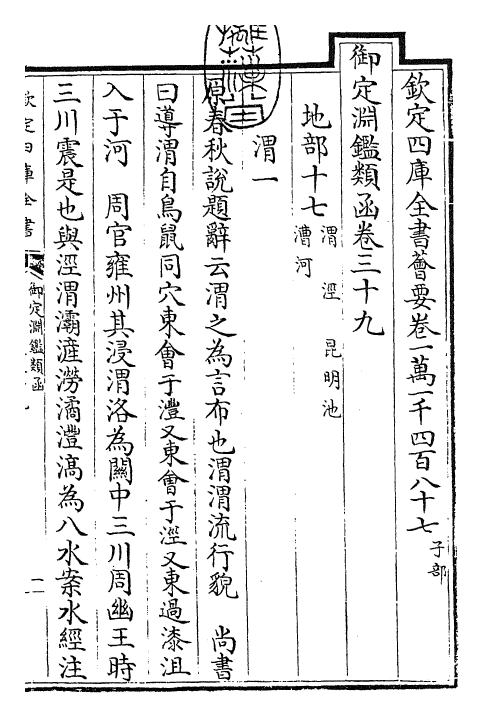 欽定四庫全書薈要卷一萬一千四百八十七 子部
御定淵鑑類函卷三十九
地部十七 渭 涇 昆明池
漕河
渭一
原春秋說題辭云渭之為言布也渭渭流行貌 尚書
曰導渭自鳥鼠同穴東會于灃又東會于涇又東過漆沮
入于河 周官雍州其浸渭洛為關中三川周幽王時
三川震是也與涇渭灞滻澇潏灃滈為八水案水經注
欽定四庫全書
御定淵鑑類函